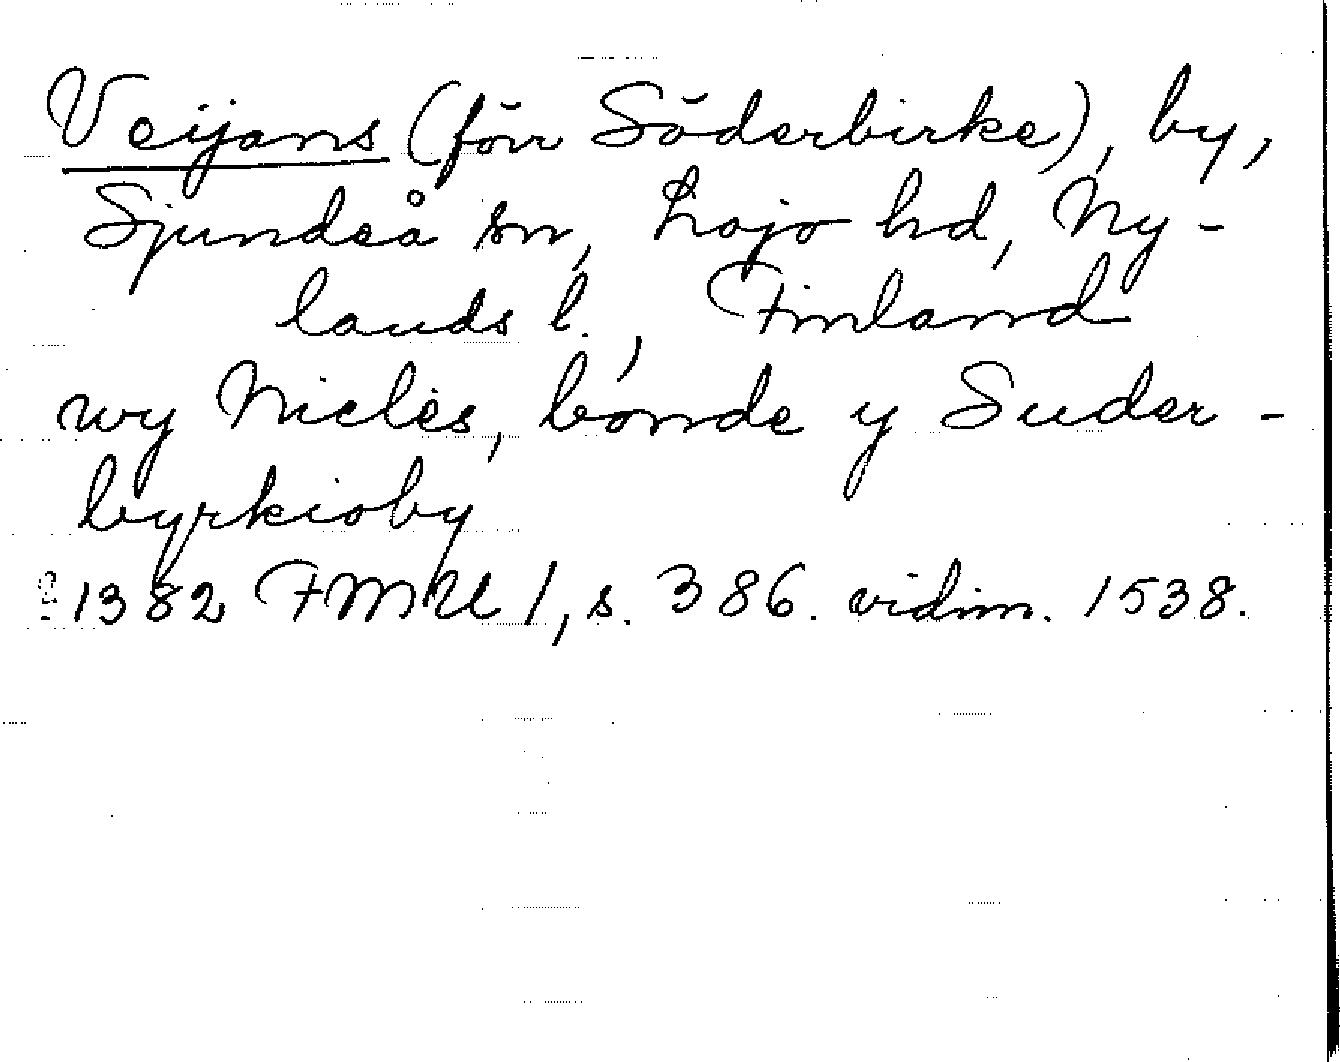 Veijans (förr Söderbirke), by,
Sjundeå sn, Lojo hd, Ny-
lands l., Finland
wy Niclẹs, bonde y Suder-
byrkioby
1382 FMU 1, s. 386. vidim. 1538.